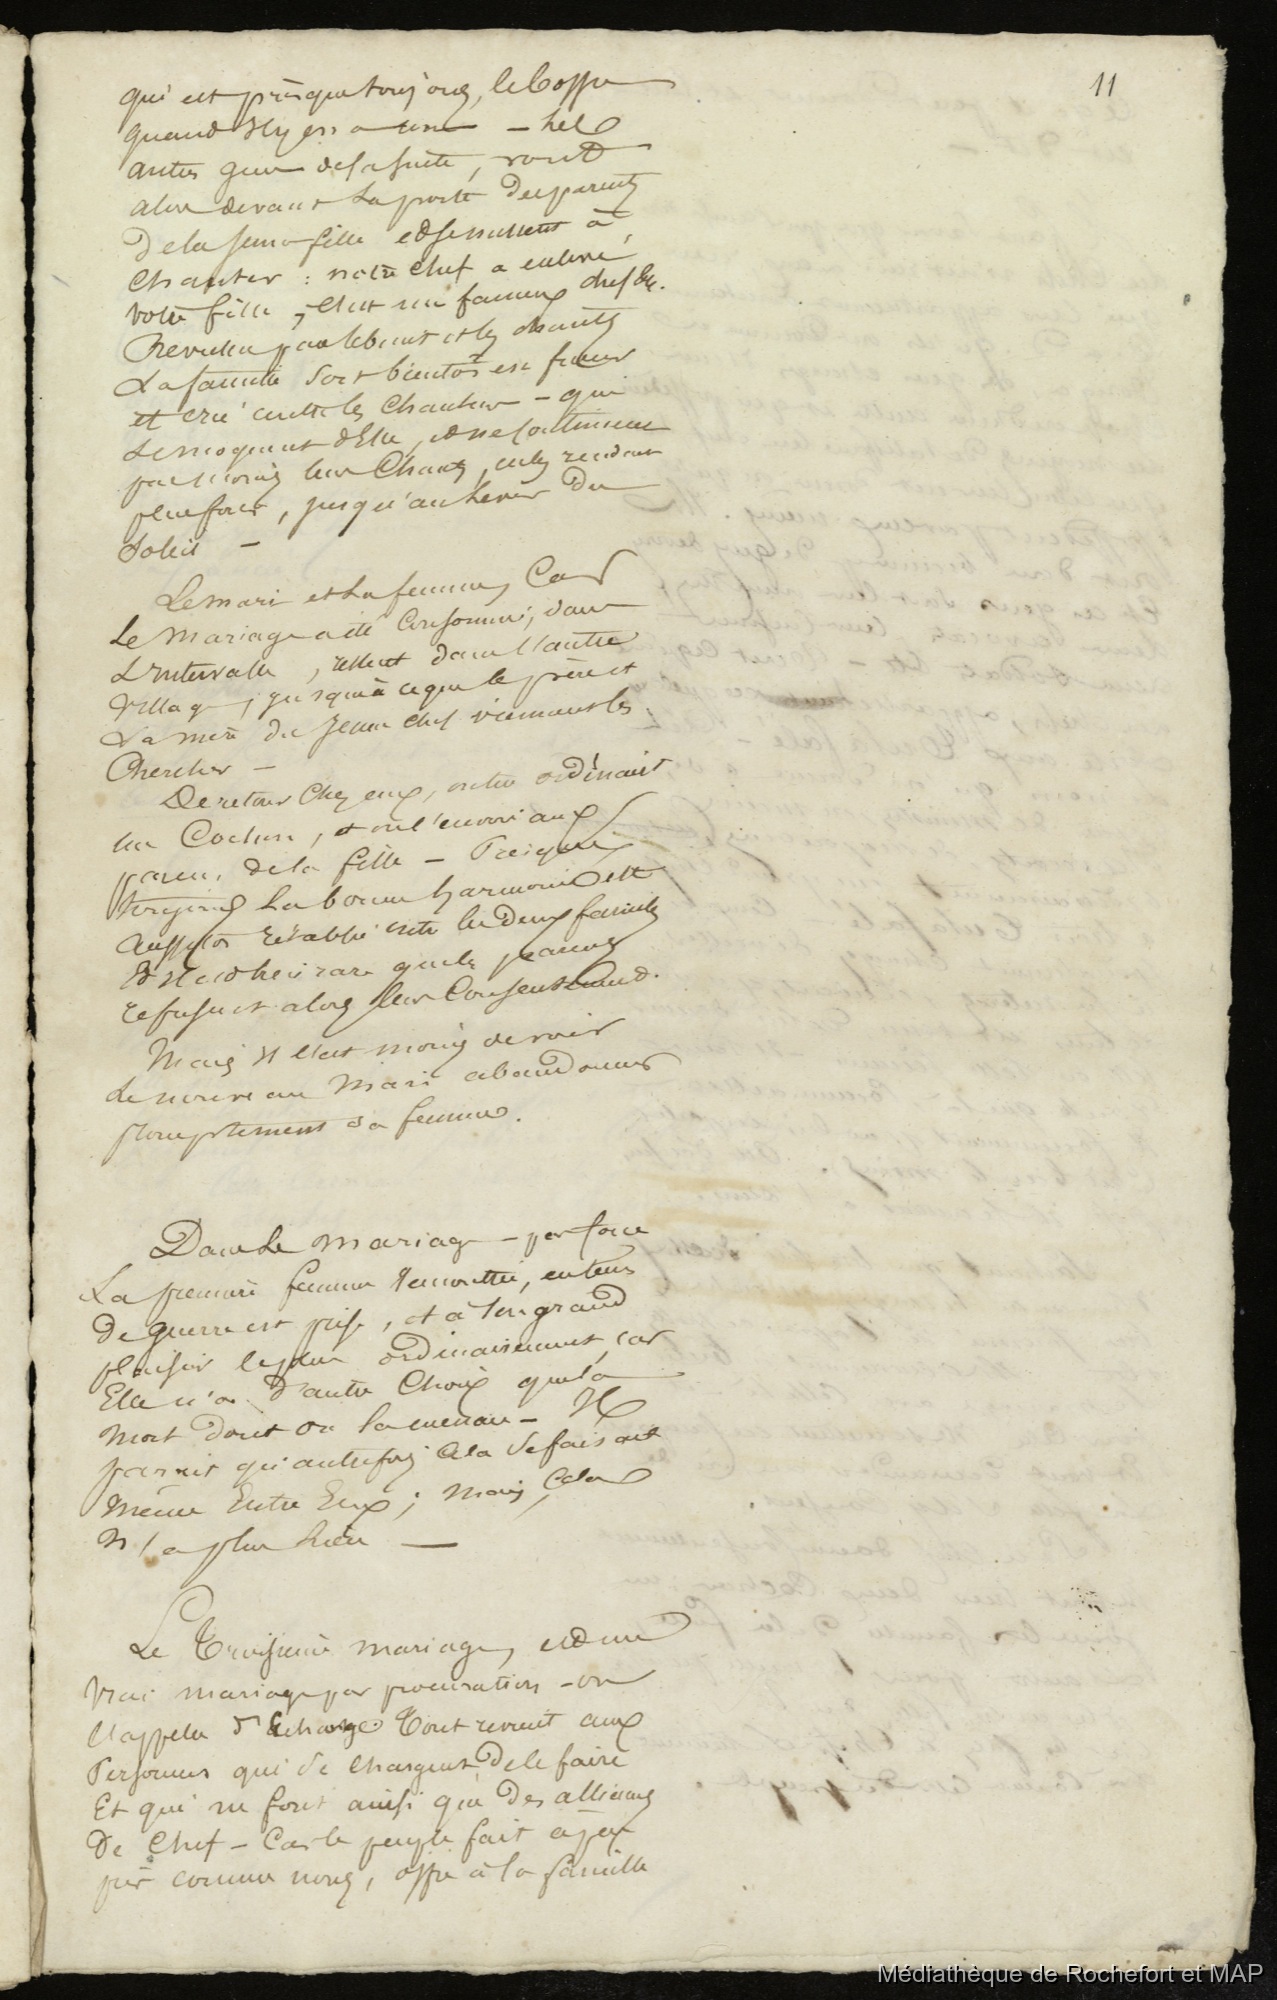 11
qui est presque toujours, le bossu
quand il y en a un — et les
autres gens de sa suite, vont
alors devant la porte des parents
de la jeune fille et se mettent à
chanter : notre chef a enlevé
votre fille, c'est un fameux chef &c.
Reveillée par le bruit et les chants
La famille sort bientôt en fureur
et crie contre les chanteurs — qui
se moquent d'Elle, et ne continuent
pas moins leurs Chants, en les rendant
plus forts, jusqu'au lever du
Soleil —
Le mari et la femme, Car
Le Mariage a été Consommé, dans
L'Intervalle, restent dans l'autre
Village, jusqu'à ce que le père et
La mère du jeune chef viennent les
Chercher —
De retour chez eux, on tue ordinairt
un Cochon, et on l'envoie aux
parens de la fille — Presque
toujours La bonne harmonie est
aussitôt rétablie entre les deux familles
Et il est très rare que les parents
refusent alors leur Consentement.
Mais il l'est moins de voir
Le nouveau Mari abandonner
promptement sa femme.
Dans Le mariage — par force
La première femme rencontrée, en tems
De guerre est prise, et à son grand
plaisir le plus ordinairement, car
Elle n'a d'autre Choix que la
Mort dont on la menace — Il
parait qu'autrefois Cela se faisait
même Entre Eux ; mais, Cela
N'a plus lieu —
Le Troisième mariage, est un
Vrai mariage par procuration — on
l'appelle d'échange Tout revient aux
Personnes qui se chargent de le faire
Et qui ne font ainsi que des alliances
De Chef — Car le peuple fait à peu
près comme nous, offre à la famille
Médiathèque de Rochefort et MAP